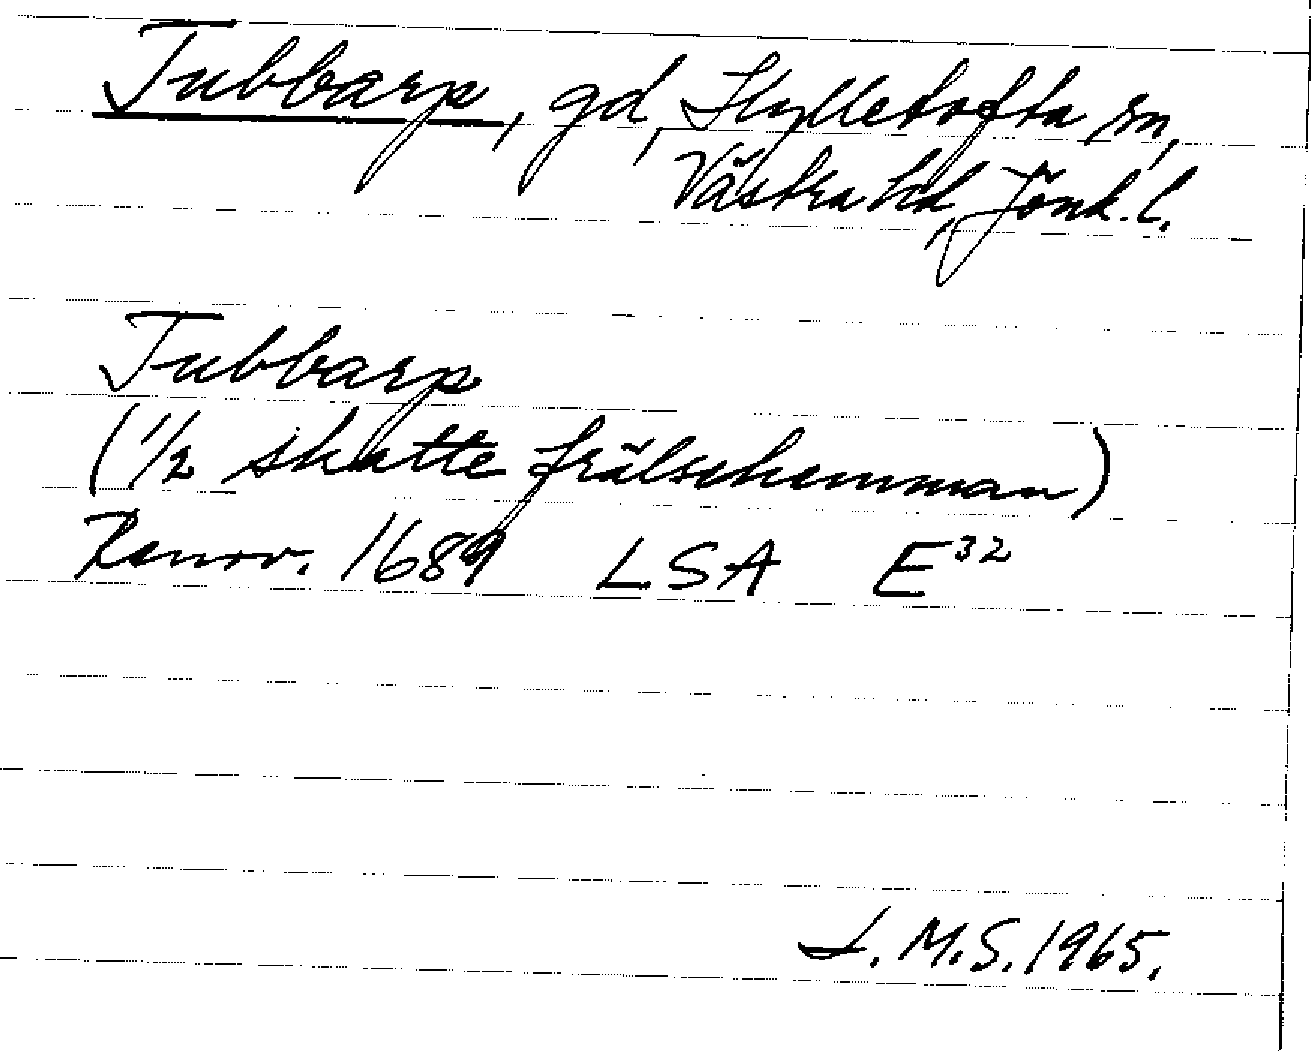 Tubbarp, gd, Hylletofta sn,
Västra hd, Jönk. l.
Tubbarp
(1/2 skatte frälsehemman)
Renov. 1689 LSA E³²
I. M.S. 1965.